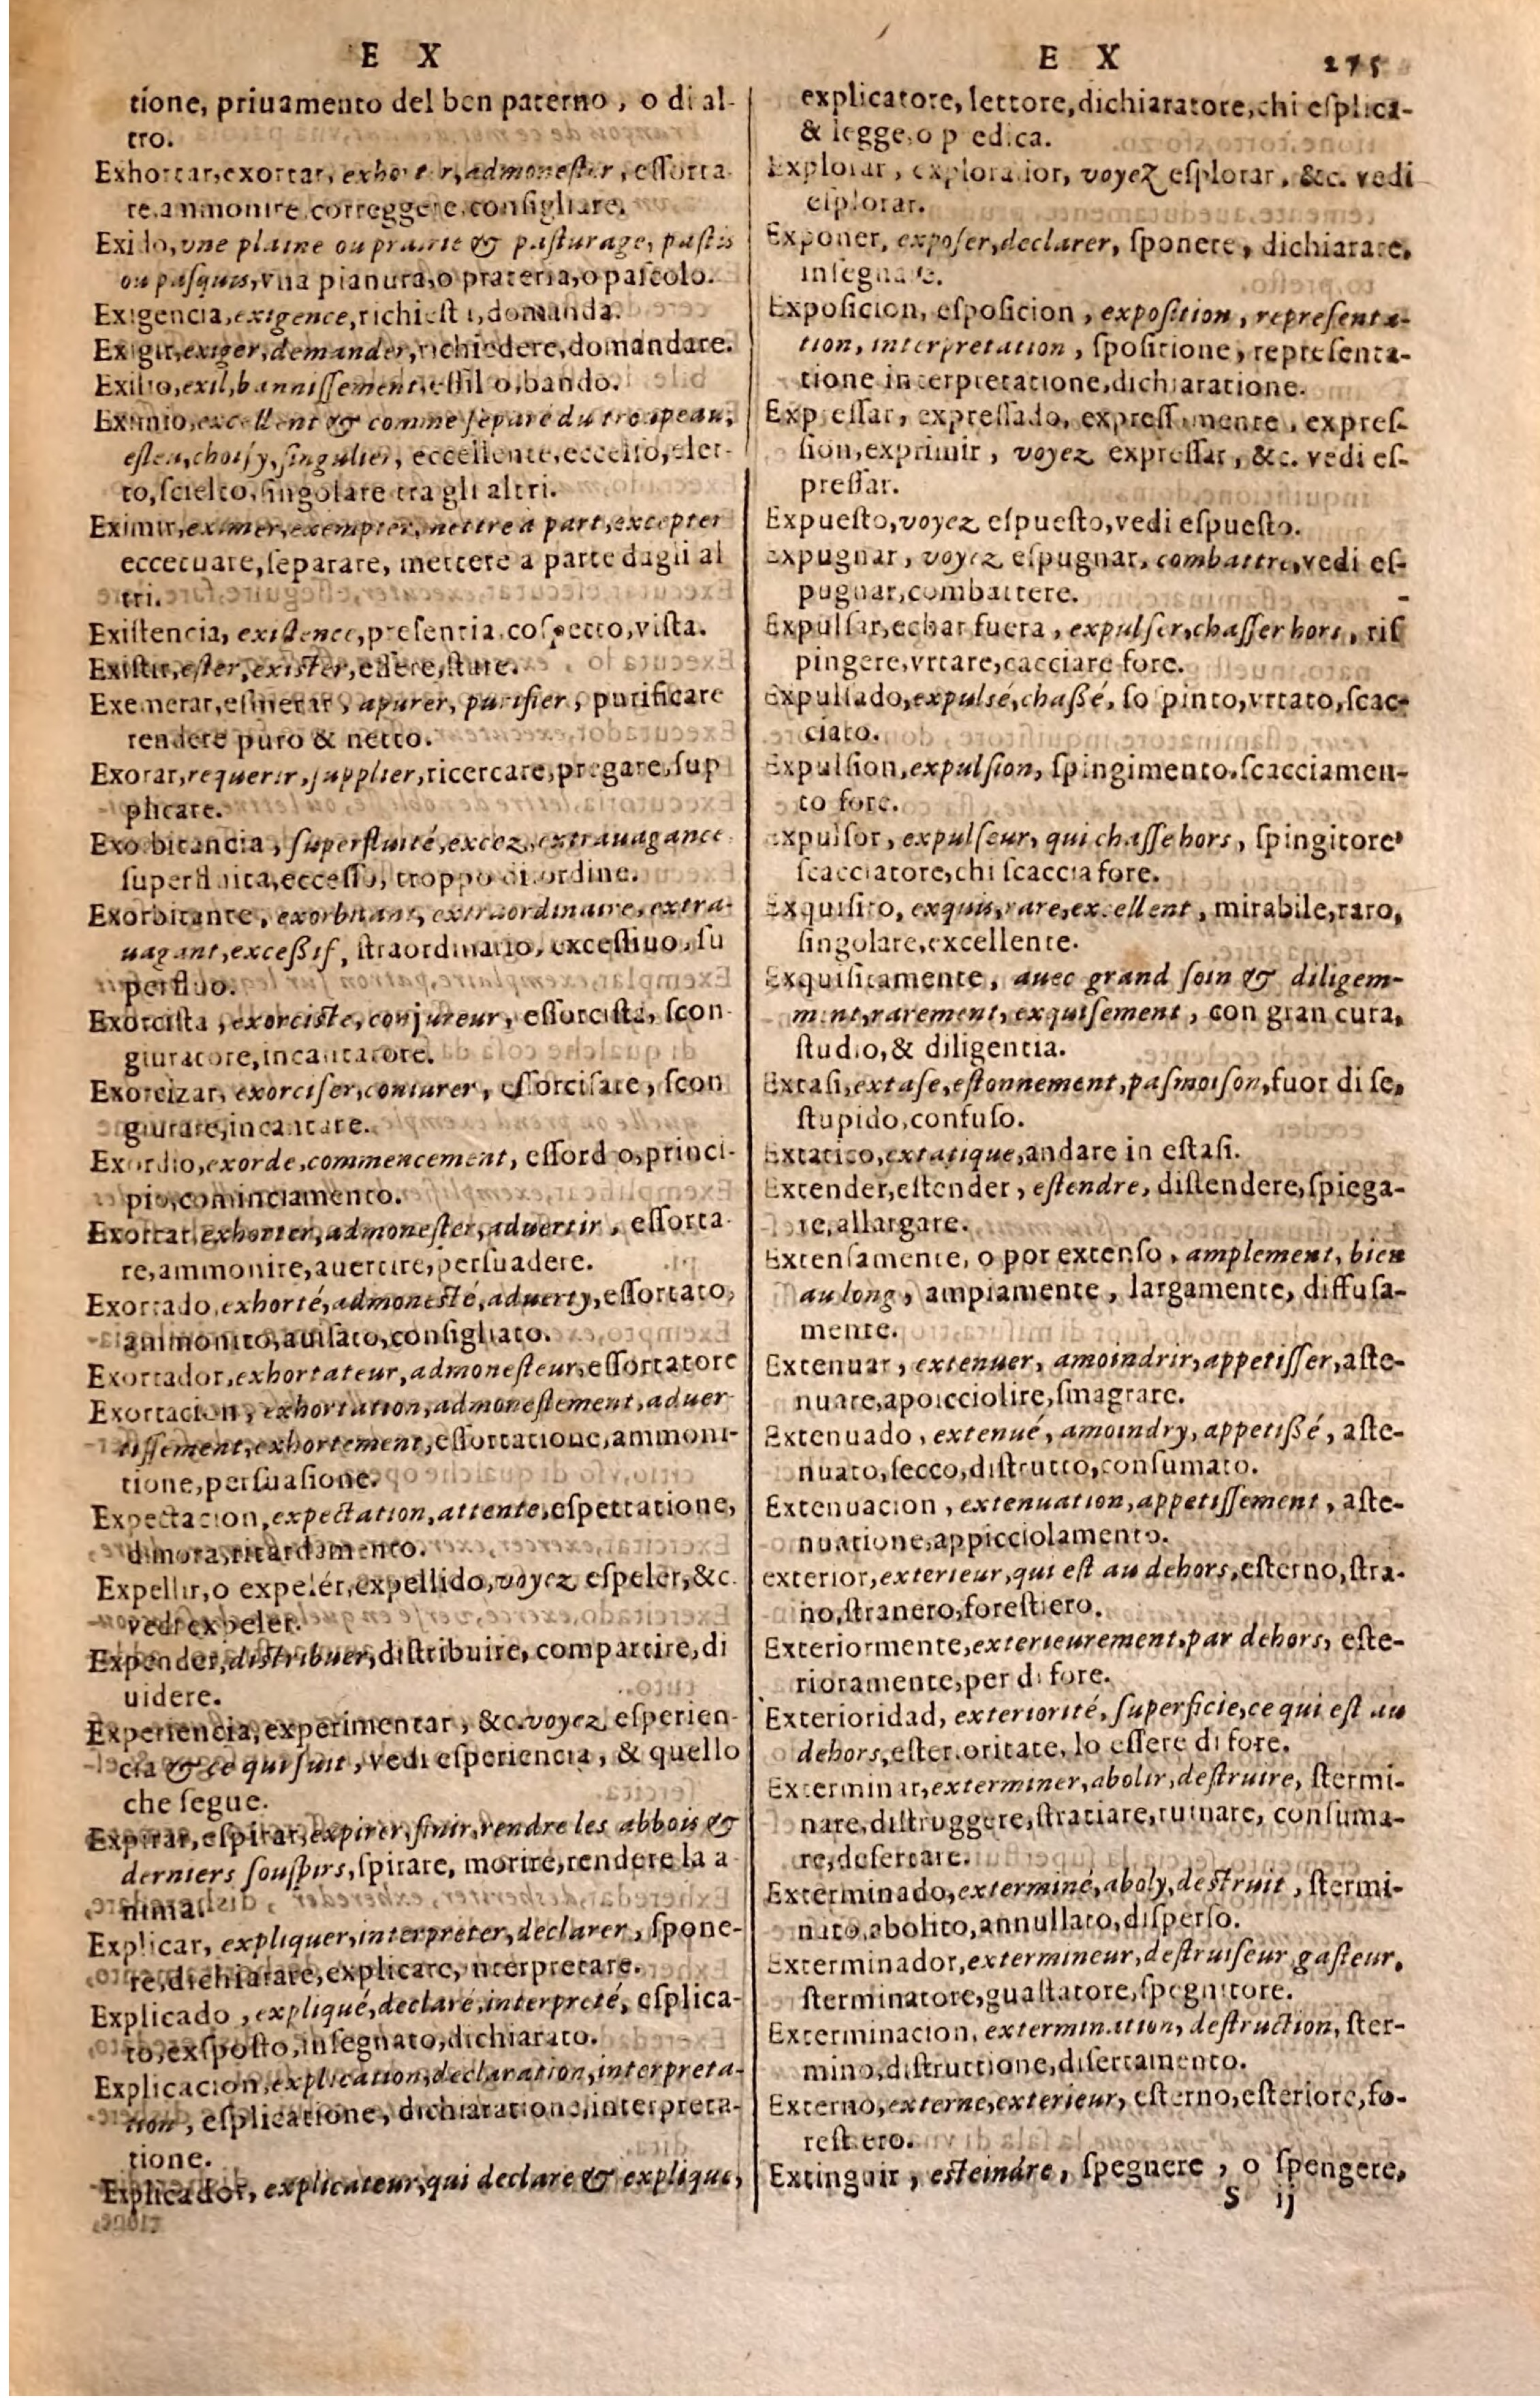 E X
tione, priuamento del ben paterno, o di al-
tro.
Exhortar, exortar, exhorter, admonester, essorta
re, ammonire, correggere, consigliare.
Exido, vne plaine ou prairie & pasturage, pastis
ou pasquis, vna pianura, o prateria, o pascolo.
Exigencia, exigence, richiesta, domanda.
Exigir, exiger, demander, richiedere, domandare.
Exilio, exil, bannissement, essilio, bando.
Eximio, excellent & comme separé du troupeau,
esleu, choisy, singulier, eccellente, eccelso, elet-
to, scielto, singolare tra gli altri.
Eximir, eximer, exempter, mettre a part, excepter
eccetuare, separare, mettere a parte dagli al
tri.
Existencia, existence, presentia, cospetto, vista.
Existir, ester, exister, essere, stare.
Exemerar, esmerar, apurer, purifier, purificare
rendere puro & netto.
Exorar, requerir, supplier, ricercare, pregare, sup
plicare.
Exorbitancia, superfluité, excez, extrauagance
superfluita, eccesso, troppo disordine.
Exorbitante, exorbitant, extraordinaire, extra-
uagant, exceßif, straordinario, excessiuo, su
perfluo.
Exorcista, exorciste, conjureur, essorcista, scon-
giuratore, incantatore.
Exorcizar, exorciser, coniurer, essorcisare, scon
giurare, incantare.
Exordio, exorde, commencement, essordio, princi-
pio, cominciamento.
Exortar, exhorter, admonester, aduertir, essorta-
re, ammonire, auertire, persuadere.
Exortado, exhorté, admonesté, aduerty, essortato,
ammonito, auisato, consigliato.
Exortador, exhortateur, admonesteur, essortatore
Exortacion, exhortation, admonestement, aduer-
tissement, exhortement, essortatione, ammoni-
tione, persuasione.
Expectacion, expectation, attente, espettatione,
dimora, ritardamento.
Expellir, o expelér, expellido, voyez espeler, &c.
vedi expeler.
Expender, distribuer, distribuire, compartire, di
uidere.
Experiencia, experimentar, &c. voyez esperien-
cia & ce qui suit, vedi esperiencia, & quello
che segue.
Expirar, espirar, expirer, finir, rendre les abbois &
derniers souspirs, spirare, morire, rendere la a
nima.
Explicar, expliquer, interpreter, declarer, spone-
re, dichiarare, explicare, nterpretare.
Explicado, expliqué, declaré, interpreté, esplica-
to, exsposto, insegnato, dichiarato.
Explicacion, explication, declaration, interpreta-
tion, esplicatione, dichiaratione, interpreta-
tione.
Explicador, explicateur, qui declare & explique,
E X 275
explicatore, lettore, dichiaratore, chi esplica-
& legge, o p edica.
Explorar, explorador, voyez esplorar, &c. vedi
esplorar.
Exponer, exposer, declarer, sponere, dichiarare,
insegnare.
Exposicion, esposicion, exposition, representa-
tion, interpretation, spositione, representa-
tione interpretatione, dichiaratione.
Expressar, expressado, expressamente, expres-
sion, exprimir, voyez expressar, &c. vedi es-
pressar.
Expuesto, voyez espuesto, vedi espuesto.
Expugnar, voyez espugnar, combattre, vedi es-
pugnar, combattere.
Expulsar, echar fuera, expulser, chasser hors, ris
pingere, vrtare, cacciare fore.
Expulsado, expulsé, chaßé, so pinto, vrtato, scac-
ciato.
Expulsion, expulsion, spingimento, scacciamen-
to fore.
Expulsor, expulseur, qui chasse hors, spingitore,
scacciatore, chi scaccia fore.
Exquisito, exquis, rare, excellent, mirabile, raro,
singolare, excellente.
Exquisitamente, auec grand soin & diligem-
ment, rarement, exquisement, con gran cura,
studio, & diligentia.
Extasi, extase, estonnement, pasmoison, fuor di se,
stupido, confuso.
Extatico, extatique, andare in estasi.
Extender, estender, estendre, distendere, spiega-
re, allargare.
Extensamente, o por extenso, amplement, bien
au long, ampiamente, largamente, diffusa-
mente.
Extenuar, extenuer, amoindrir, appetisser, aste-
nuare, apoicciolire, smagrare.
Extenuado, extenué, amoindry, appetißé, aste-
nuato, secco, distrutto, consumato.
Extenuacion, extenuation, appetissement, aste-
nuatione, appicciolamento.
exterior, exterieur, qui est au dehors, esterno, stra-
no, stranero, forestiero.
Exteriormente, exterieurement, par dehors, este-
rioramente, per di fore.
Exterioridad, exteriorité, superficie, ce qui est au
dehors, esterioritate, lo essere di fore.
Exterminar, exterminer, abolir, destruire, stermi-
nare, distruggere, stratiare, ruinare, consuma-
re, desertare.
Exterminado, exterminé, aboly, destruit, stermi-
nato, abolito, annullato, disperso.
Exterminador, extermineur, destruiseur, gasteur,
sterminatore, guastatore, spegnitore.
Exterminacion, extermination, destruction, ster-
mino, distruttione, disertamento.
Externo, externe, exterieur, esterno, esteriore, fo-
restiero.
Extinguir, esteindre, spegnere, o spengere,
S ij